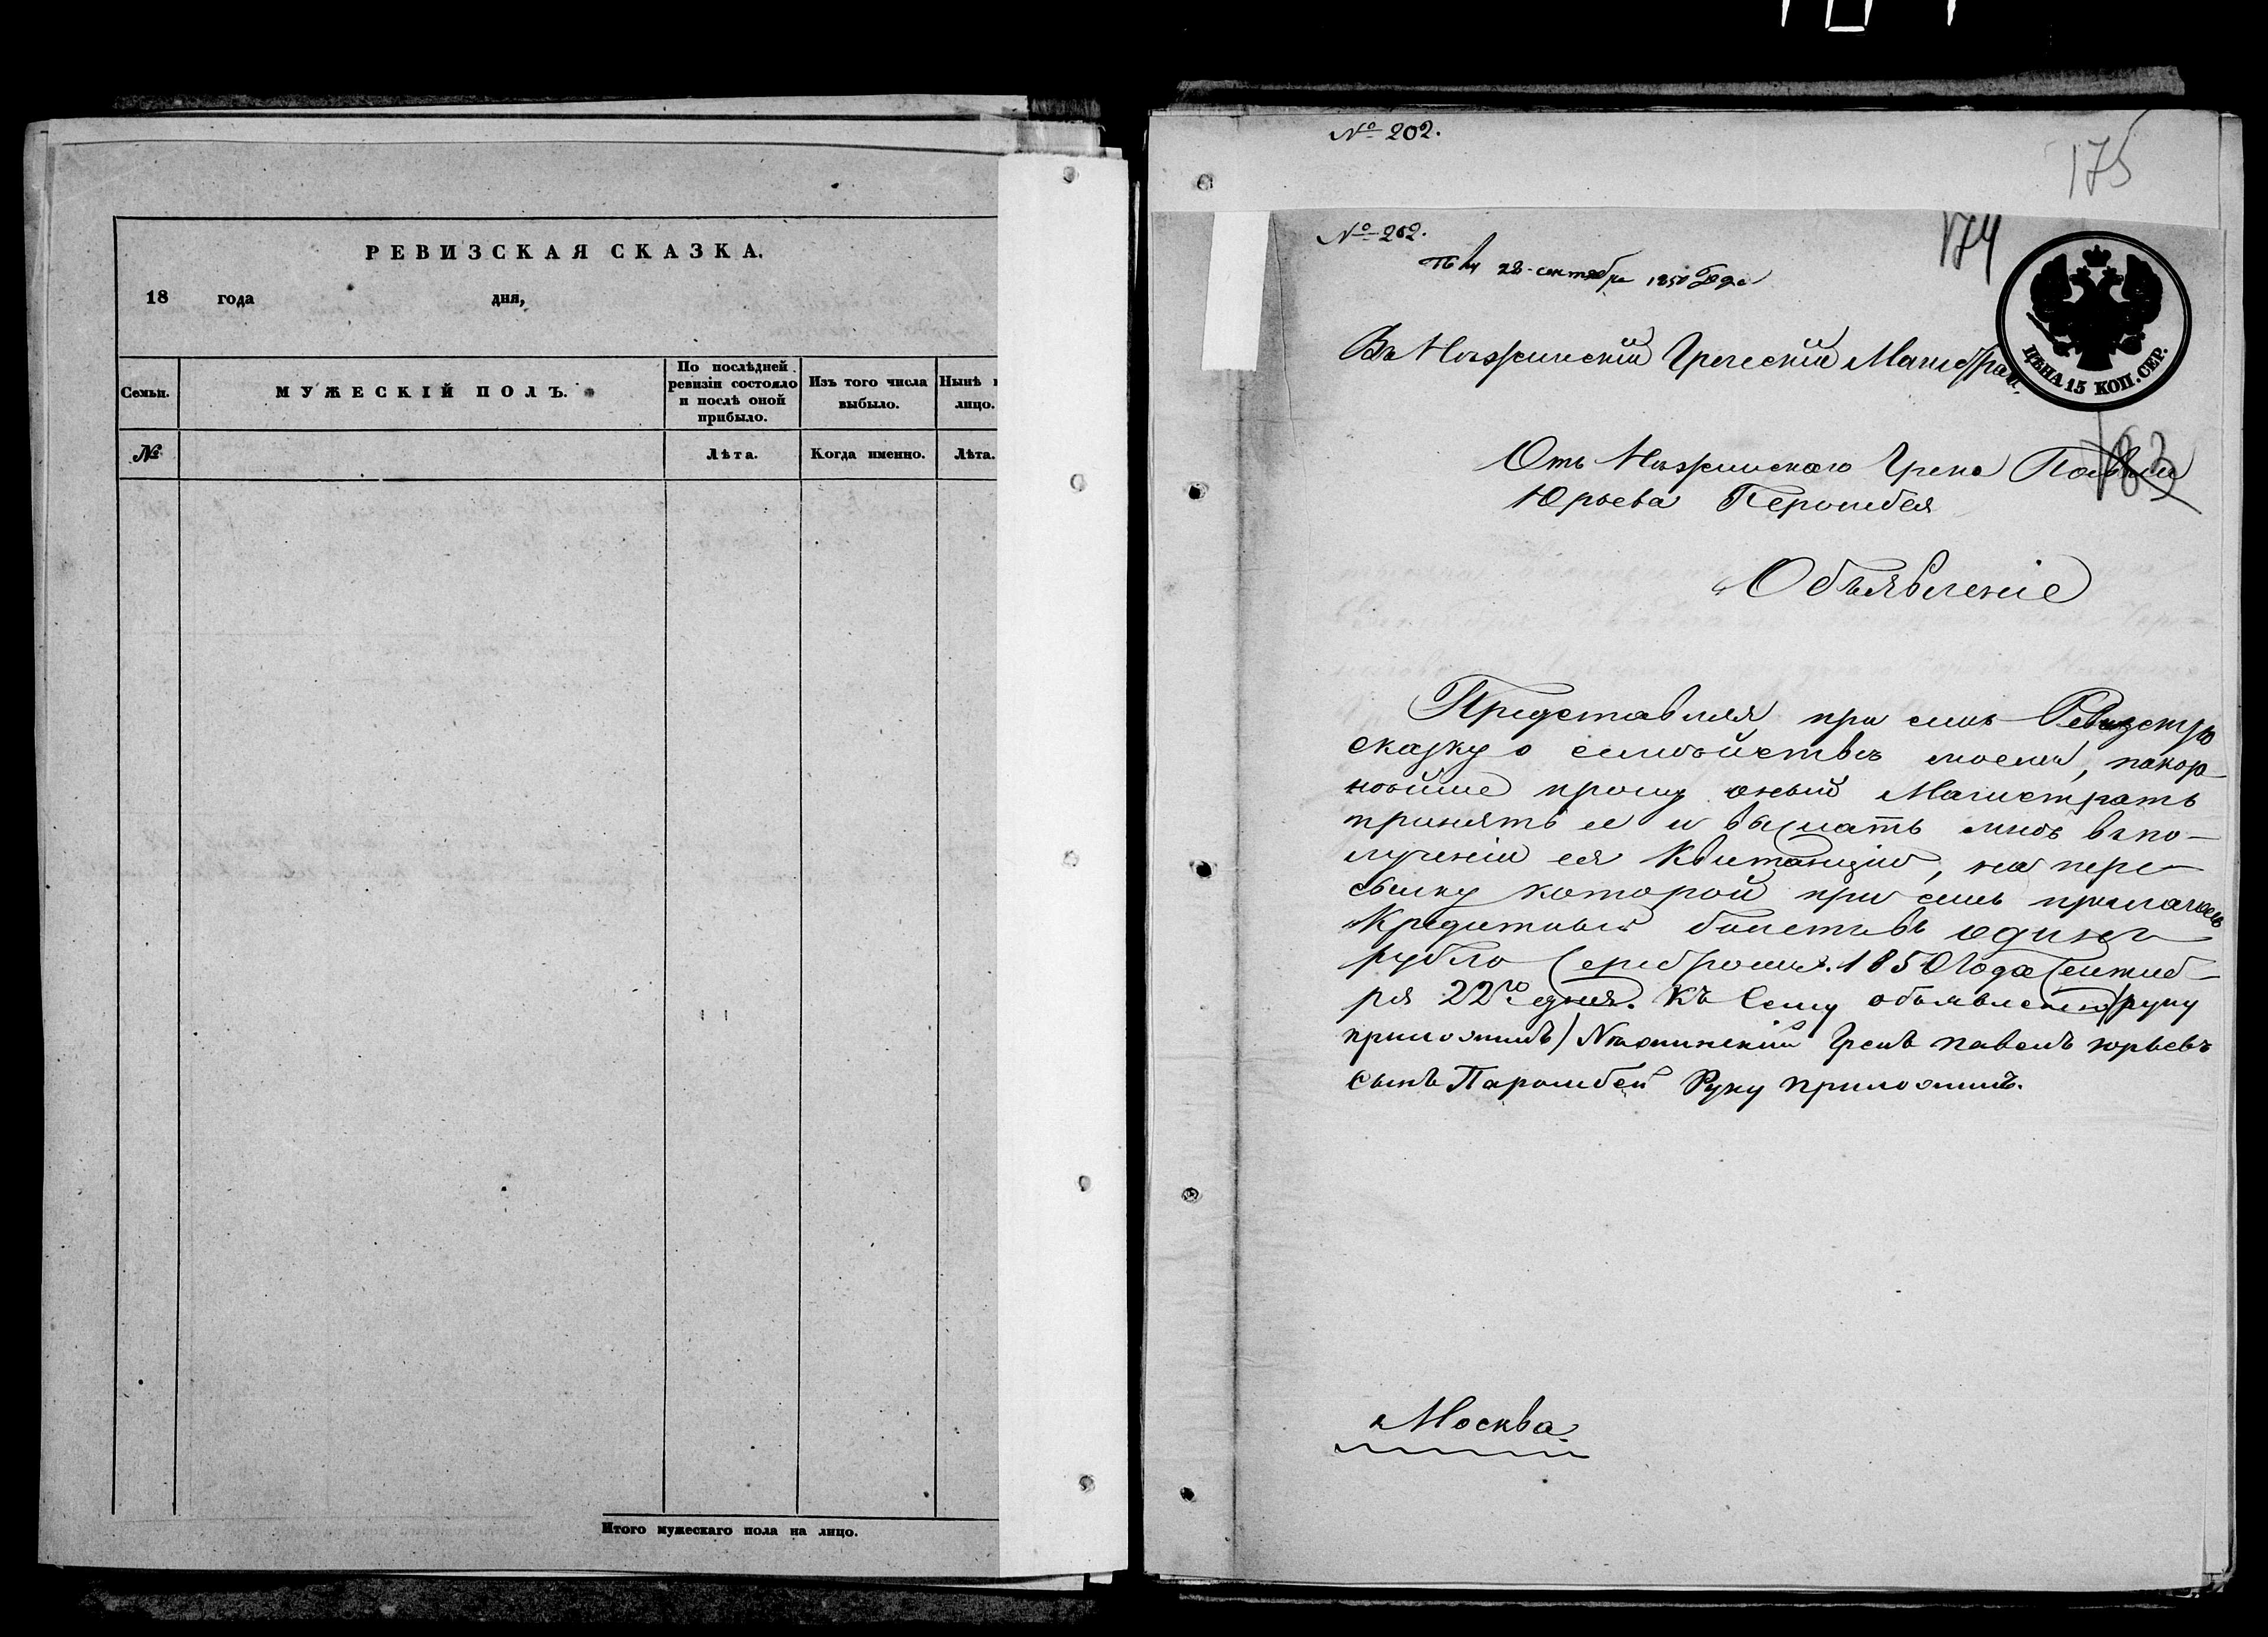 РЕВИЗСКАЯ СКАЗКА.
18 года дня,
Семьи.
МУЖЕСКІЙ ПОЛЪ.
По послѣдней ревизіи состояло и послѣ оной прибыло.
Изъ того числа выбыло.
Нынѣ
лицо.
№
Лѣта.
Когда именно.
Лѣта.
Итого мужескаго пола на лицо.
№ 202.
175
174
№ 202.
28 сентября 1850 Года
ЦѢНА 15 КОП. СЕР.
Въ Нѣжинскій Греческій Магистрат.
183
Отъ Нѣжинскаго Грека Павла
Юрьева Перомбея
Объявленіе
Представляя при семъ Ревизскую
сказку о семѣйствѣ моемъ, покор-
нѣйше прошу оный Магистратъ
принять ее и выслать мнѣ въ по-
лученіи ея Квитанцію, на пере-
сылку которой при семъ прилагаю
Кредитный билетъ въ одинъ
рубль серебромъ. 1850 Года Сентяб-
ря 22го дня. Къ Сему объявленію руку
приложилъ Нѣжинскій Грекъ павелъ юрьевъ
Сынъ Паромбей Руку приложилъ.
Москва.